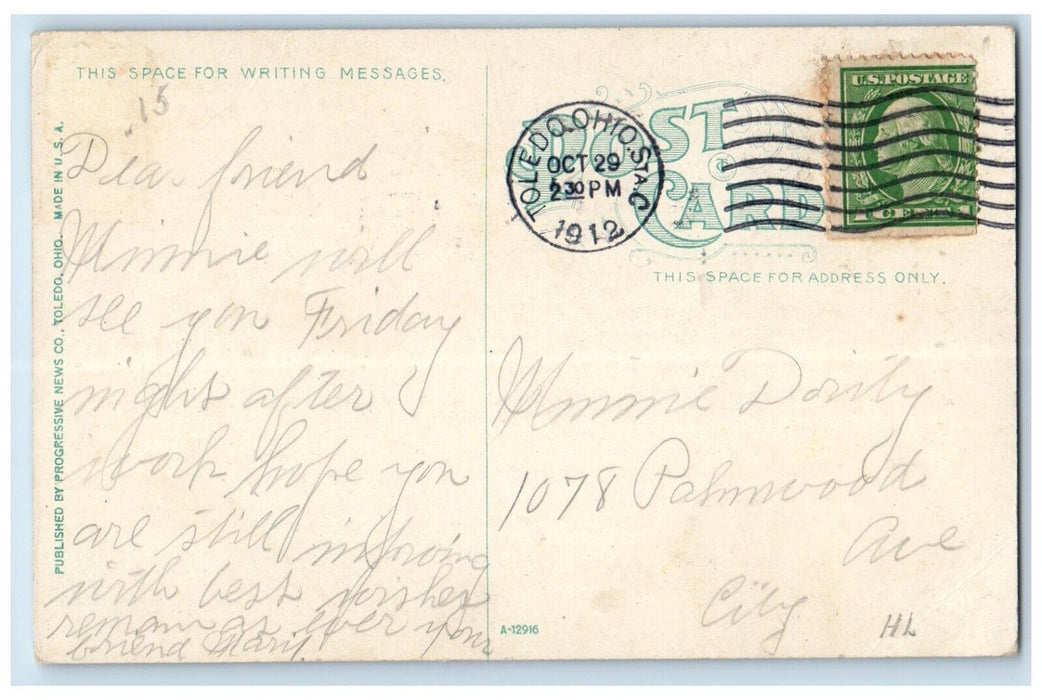 THIS SPACE FOR WRITING MESSAGES.
15
Dear friend
Minnie will
see you Friday
night after
work hope you
are still improving
with best wishes
remain as ever your
friend Mary
PUBLISHED BY PROGRESSIVE NEWS CO., TOLEDO, OHIO. MADE IN U.S.A.
POST CARD
TOLEDO, OHIO. STA. C
OCT 29
2 30 PM
1912
U.S. POSTAGE
1 CENT
THIS SPACE FOR ADDRESS ONLY.
Minnie Dority
1078 Palmwood
Ave
City
HL
A-12916